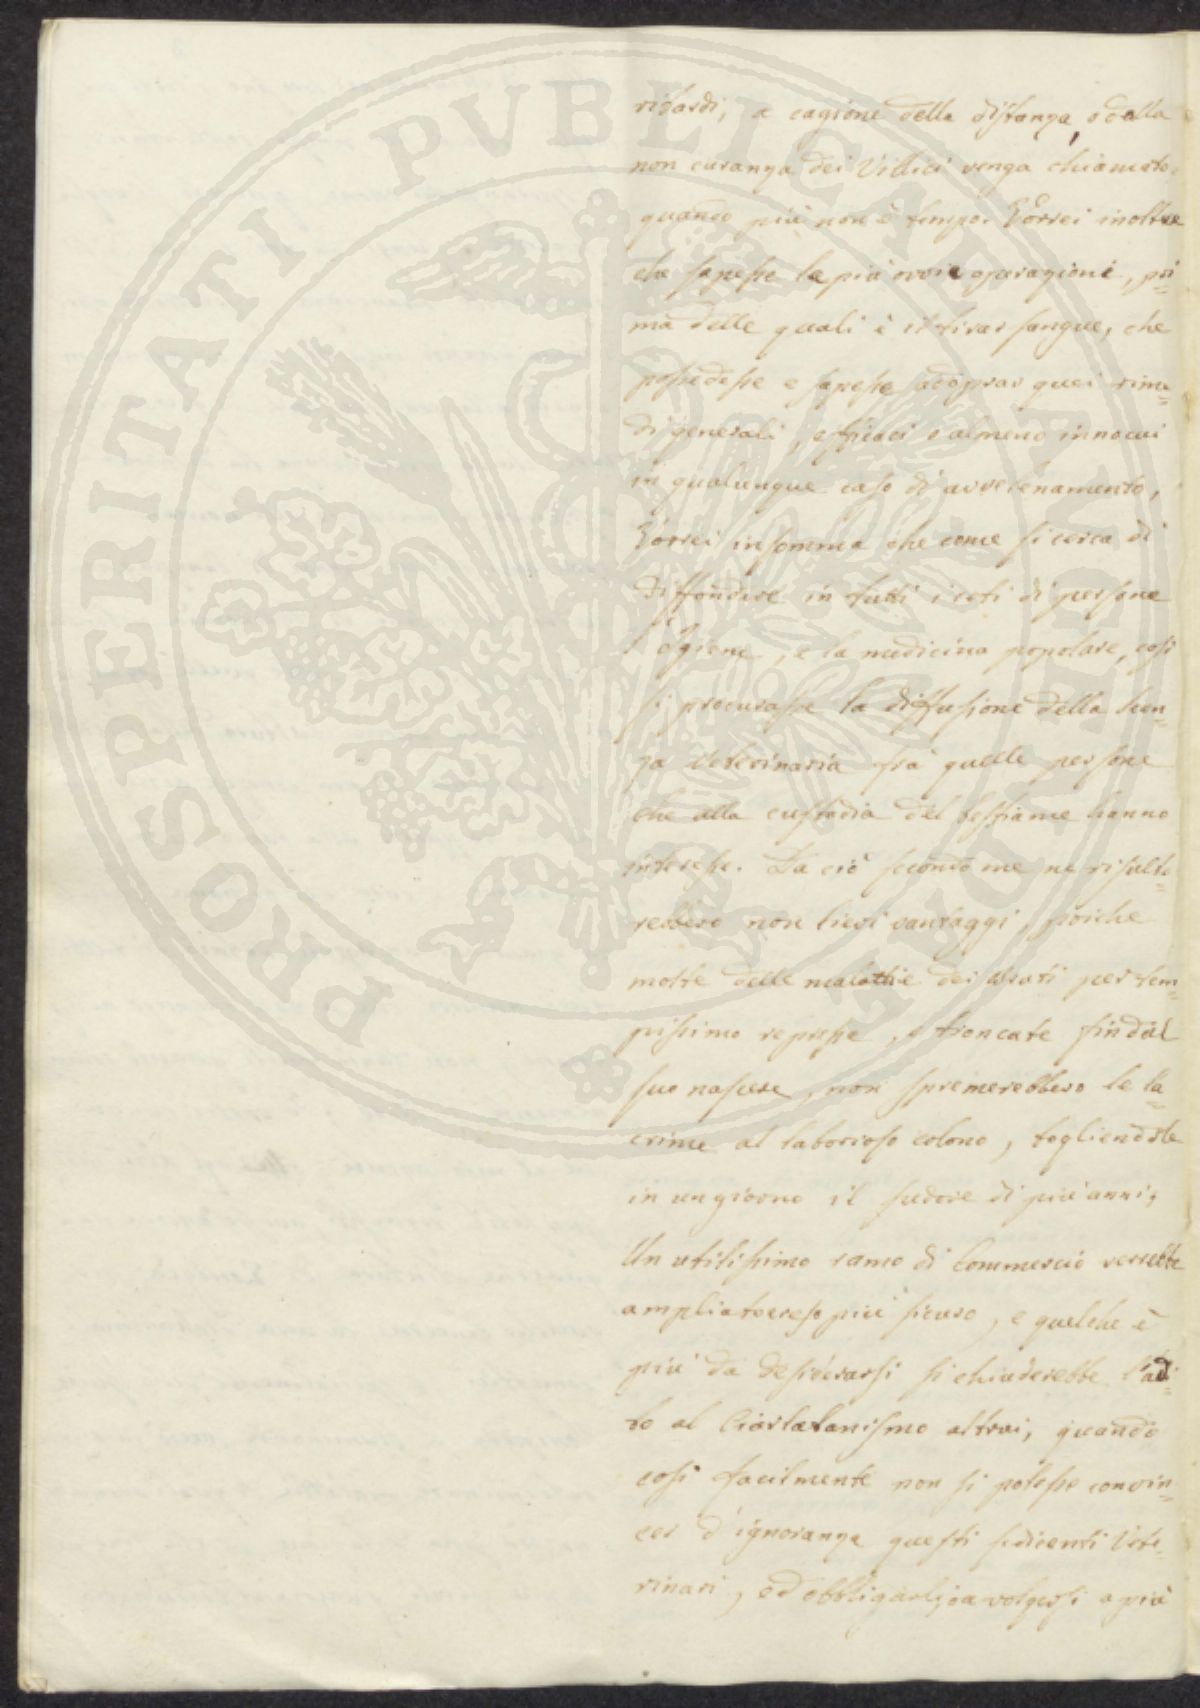 ritardi, a cagione della distanza, o dalla
non curanza dei Villici venga chiamato
quando più non è tempo. Vorrei inoltre
che sapesse le più ovvie operazioni, pri=
ma delle quali è il tirar sangue, che
possedesse e sapesse adoprar quei rime=
di generali, efficaci o almeno innocui
in qualunque caso di avvelenamento,
Vorrei insomma che come si cerca di
diffondere in tutti i ceti di persone
l'Igiene, e la medicina popolare, così
si procurasse la diffusione della scien=
za Veterinaria fra quelle persone
che alla custodia del bestiame hanno
interesse. Da ciò secondo me ne risulte=
rebbero non lievi vantaggi, poiche
molte delle malattie dei bruti per tem=
pissimo represse, e troncate fin dal
suo nascere, non spremerebbero le la=
crime al laborioso colono, togliendole
in un giorno il sudore di più anni,
Un utilissimo ramo di Commercio verrebbe
ampliato e reso più sicuro, e quelche è
più da desiderarsi si chiuderebbe l'adi=
to al Ciarlatanismo altrui, quando
così facilmente non si potesse convin=
cer d'ignoranza questi sedicenti Vete=
rinari, ed obbligarli a volgersi a più
PROSPERITATI PUBLICAE AUGENDAE